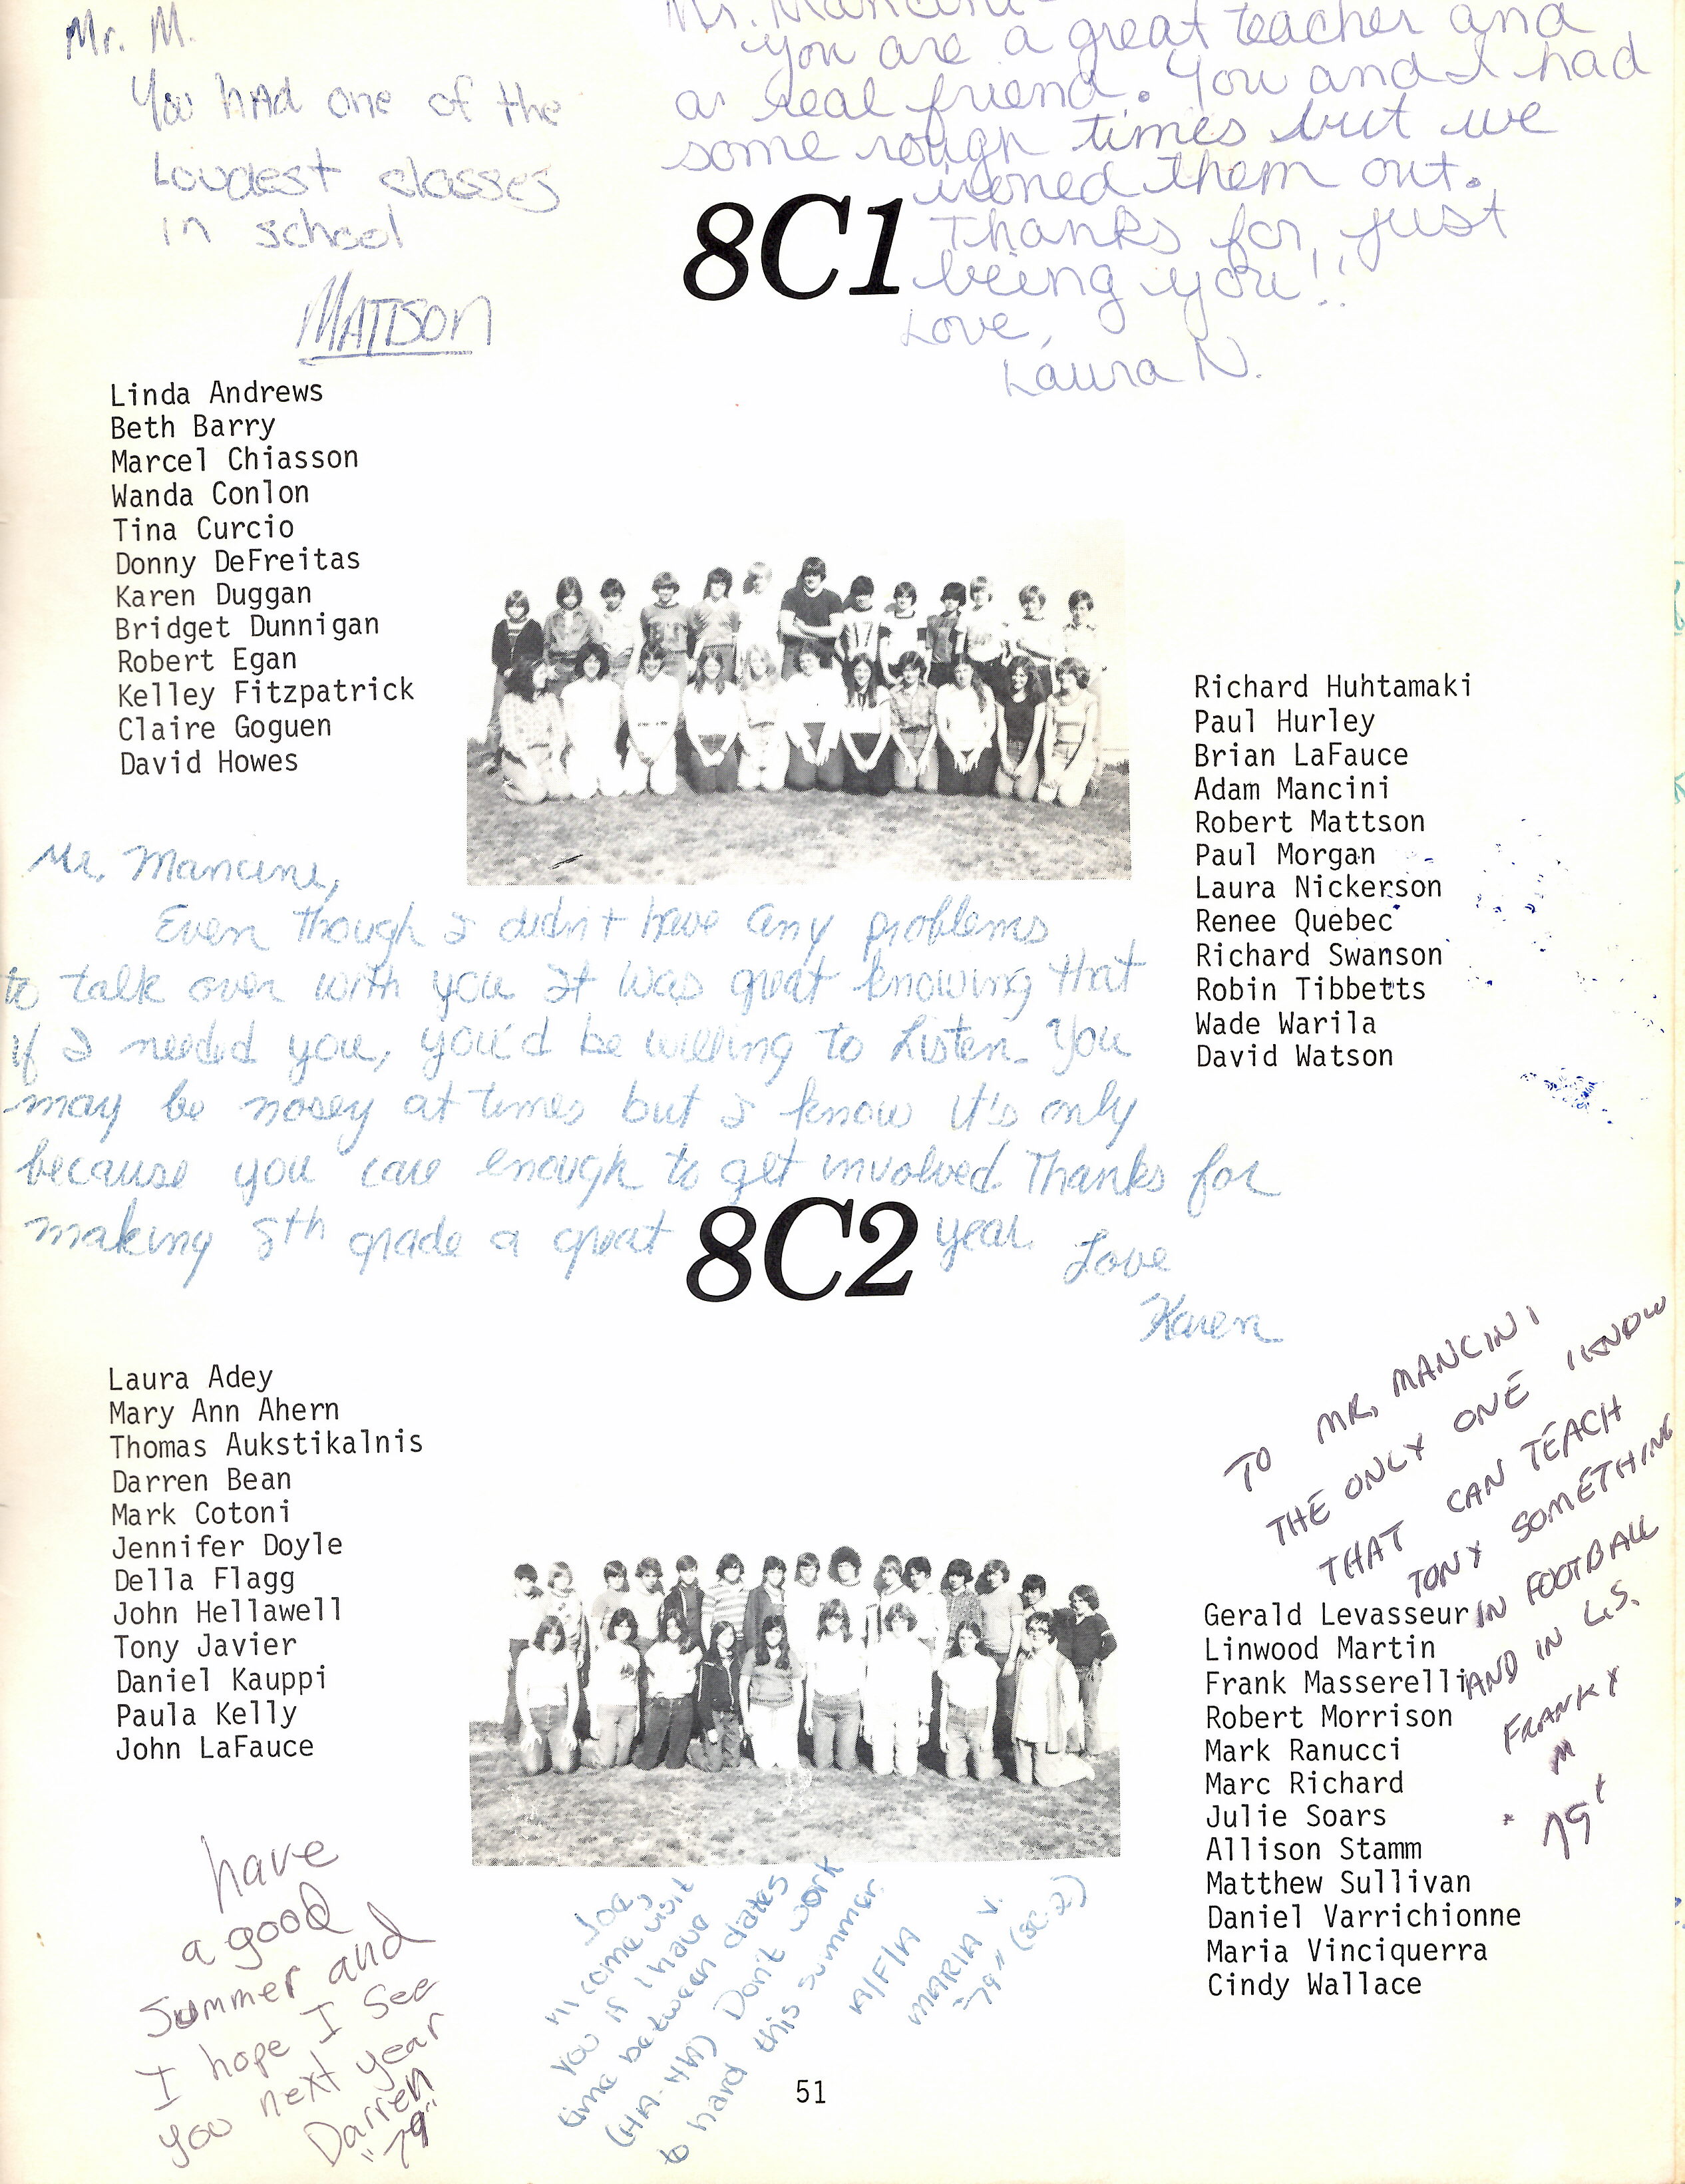 Mr. M.
You had one of the
Loudest classes
in school
MATTSON
Mr. Mancini-
you are a great teacher and
a real friend. You and I had
some rough times but we
ironed them out.
Thanks for, just
being you!!
Love,
Laura N.
8C1
Linda Andrews
Beth Barry
Marcel Chiasson
Wanda Conlon
Tina Curcio
Donny DeFreitas
Karen Duggan
Bridget Dunnigan
Robert Egan
Kelley Fitzpatrick
Claire Goguen
David Howes
Richard Huhtamaki
Paul Hurley
Brian LaFauce
Adam Mancini
Robert Mattson
Paul Morgan
Laura Nickerson
Renee Quebec
Richard Swanson
Robin Tibbetts
Wade Warila
David Watson
Mr. Mancini,
Even though I didn't have any problems
to talk over with you it was great knowing that
if I needed you, you'd be willing to listen. You
may be nosey at times but I know it's only
because you care enough to get involved. Thanks for
making 8th grade a great year. Love
Karen
8C2
Laura Adey
Mary Ann Ahern
Thomas Aukstikalnis
Darren Bean
Mark Cotoni
Jennifer Doyle
Della Flagg
John Hellawell
Tony Javier
Daniel Kauppi
Paula Kelly
John LaFauce
TO MR, MANCINI
THE ONLY ONE I KNOW
THAT CAN TEACH
TONY SOMETHING
IN FOOTBALL
AND IN L.S.
FRANKY
M
79'
Gerald Levasseur
Linwood Martin
Frank Masserelli
Robert Morrison
Mark Ranucci
Marc Richard
Julie Soars
Allison Stamm
Matthew Sullivan
Daniel Varrichionne
Maria Vinciquerra
Cindy Wallace
have
a good
Summer and
I hope I see
you next year
Darren
"79"
Joe,
I'll come visit
you if I have
time between dates
(HA-HA) Don't work
to hard this summer.
A/F/A
MARIA V.
"79" (8C-2)
51